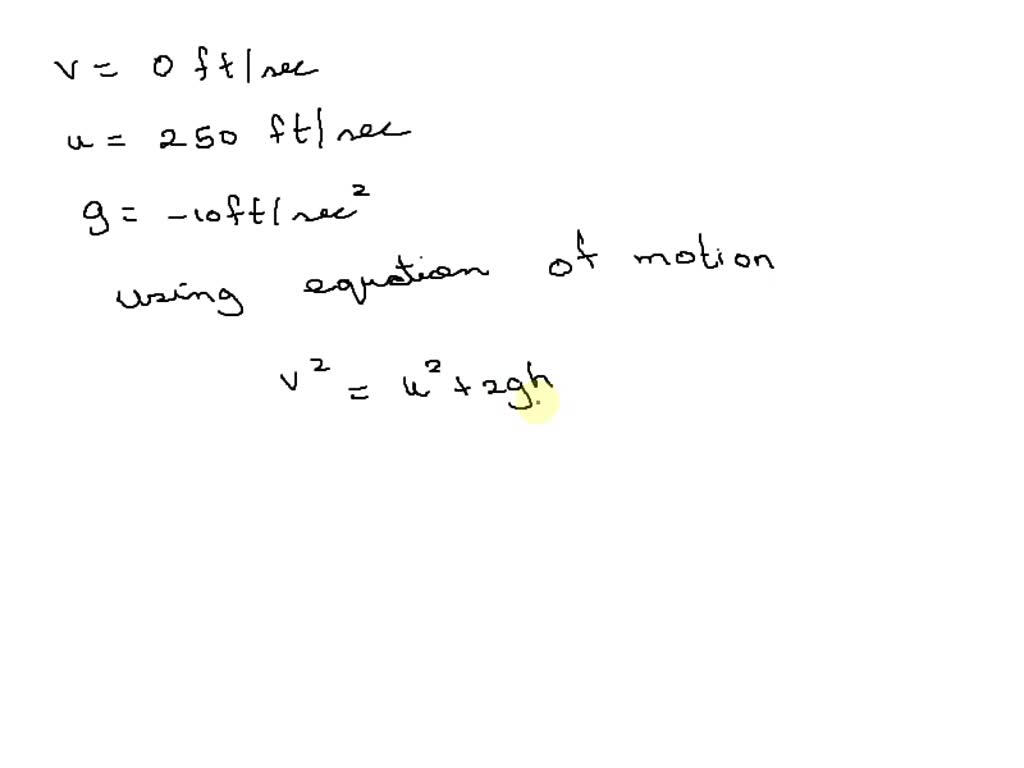 v = 0 ft/sec
u = 250 ft/sec
g = -10ft/sec²
using equation of motion
v² = u² + 2gh